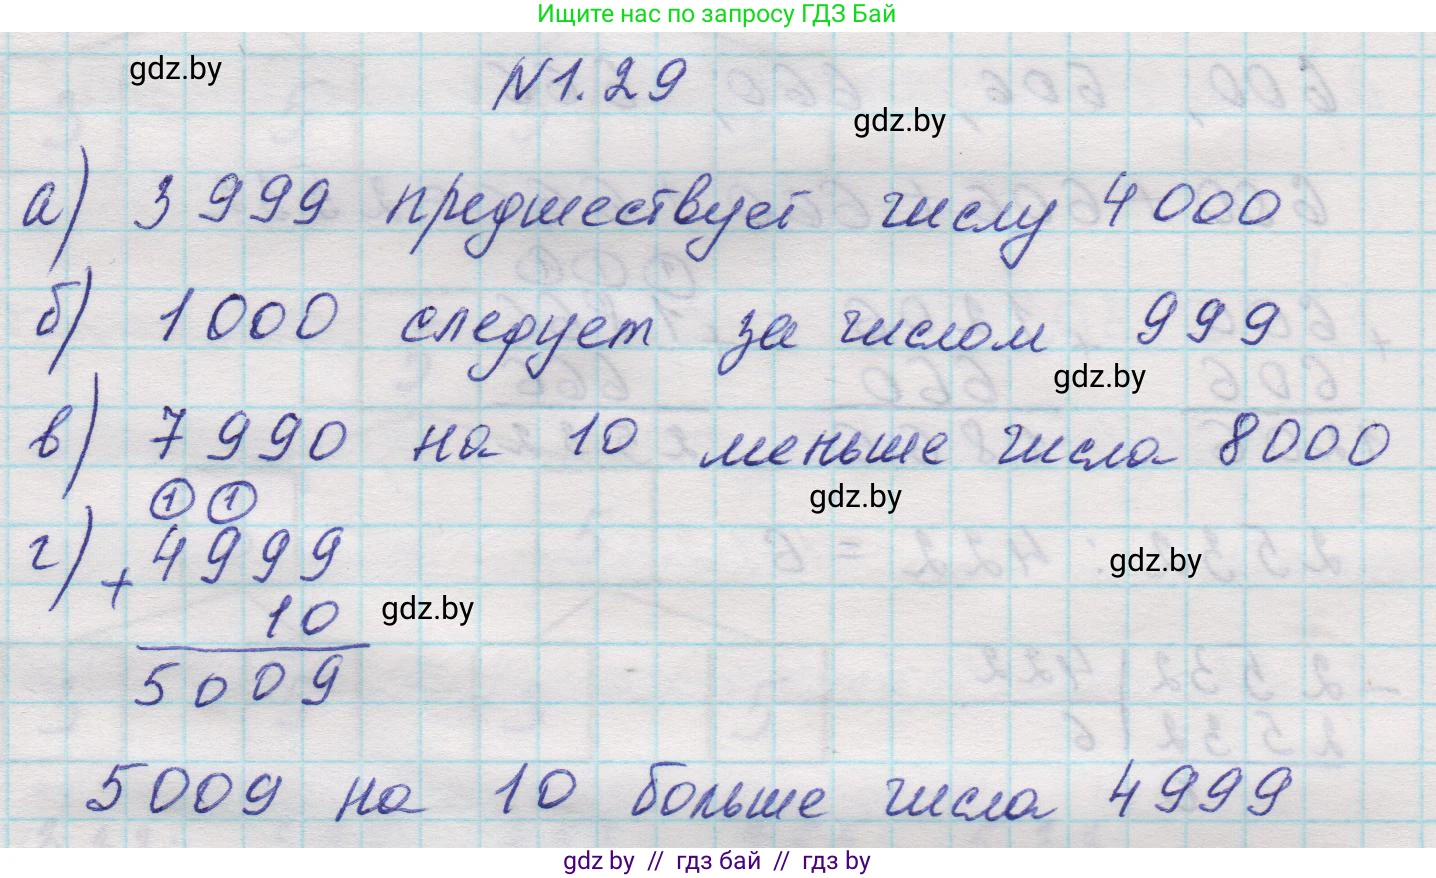 Ищите нас по запросу ГДЗ Бай
gdz.by
N1.29
gdz.by
а) 3999 предшествует числу 4000
б) 1000 следует за числом 999
gdz.by
в) 7990 на 10 меньше числа 8000
gdz.by
1 1
г) + 4999
gdz.by
10
gdz.by
5009
5009 на 10 больше числа 4999
gdz by // гдз бай // гдз by